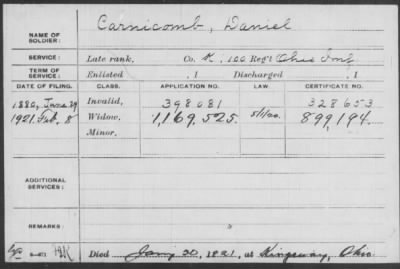 NAME OF SOLDIER: Carnicomb, Daniel
SERVICE: Late rank, Co. K, 100 Reg't Ohio Inf
TERM OF SERVICE: Enlisted , 1 Discharged , 1
DATE OF FILING. CLASS. APPLICATION NO. LAW. CERTIFICATE NO.
1880, June 29 Invalid, 398081 328653
1921, Feb, 8 Widow, 1,169,525. 5/1/20. 899,194.
Minor,
ADDITIONAL SERVICES:
REMARKS:
Died Jany 30, 1921, at Kingsway, Ohio.